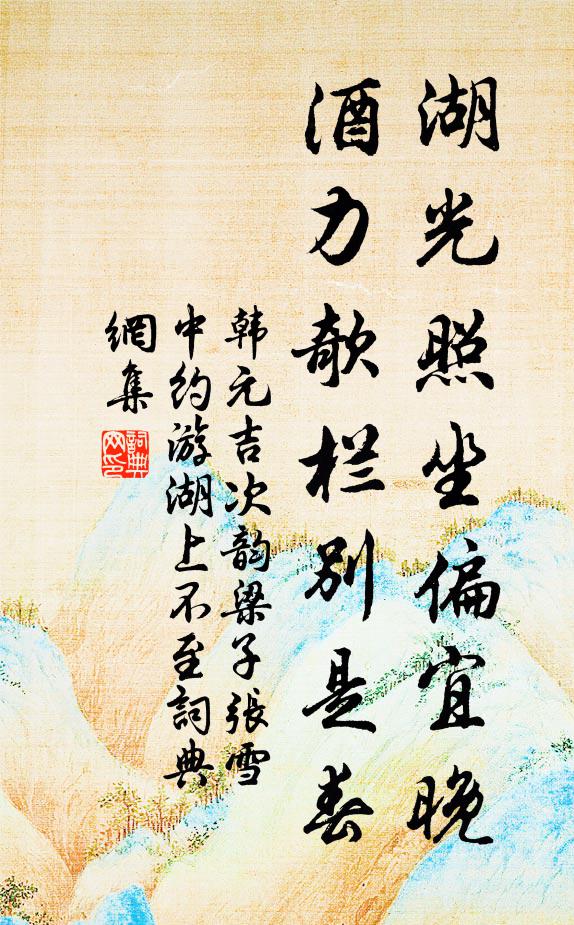 湖光照坐偏宜晚
酒力欹栏别是春
韩元吉次韵梁子張雪
中约游湖上不至詞典
網集
詞典
网印